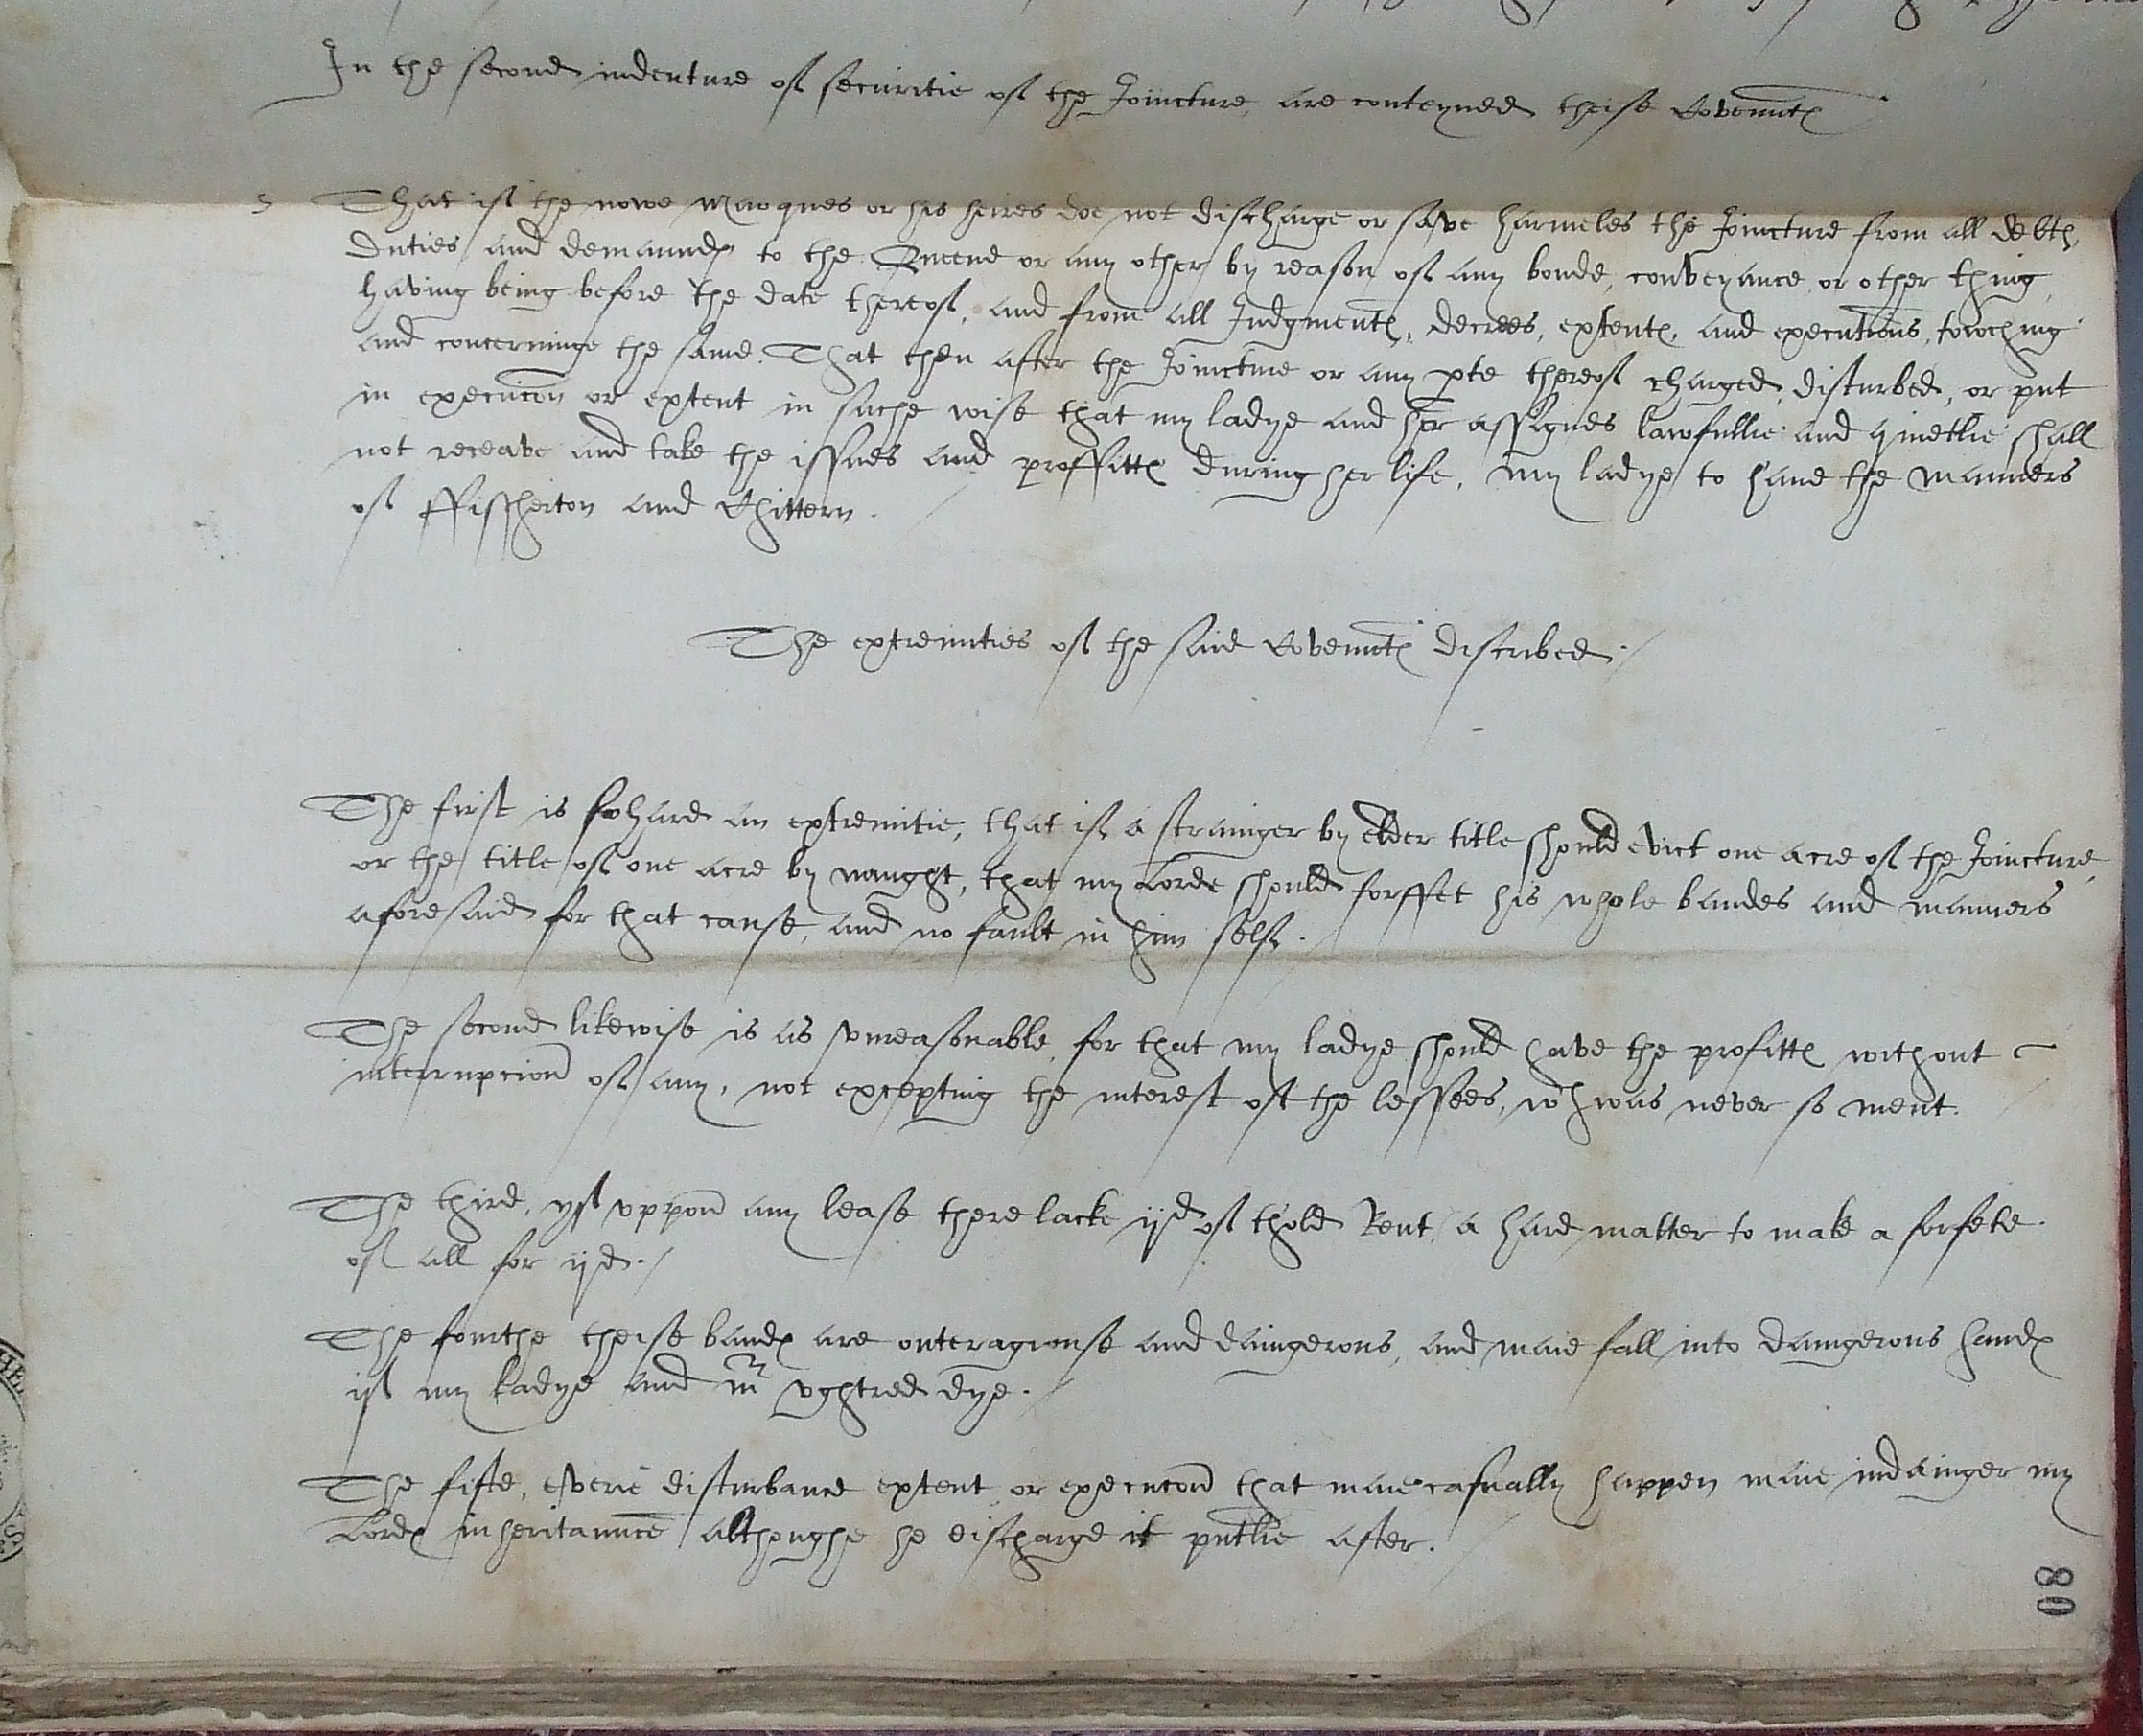 In the second indenture of securitie of the Joincture, are conteyned theise Covenntes
5 That if the nowe Marques or his heires doe not discharge or save harmeles the Joincture from all debtes,
duties and demaundes to the Queene or any other by reason of any bonde, conveyance, or other thing,
having being before the date thereof, and from all Judgmentes, decrees, extentes, and executions, towching
and concerninge the same. That then after the Joincture or any pte thereof charged, disturbed, or put
in execucion or extent in suche wise that my ladye and her assignes lawfullie and quietlie shall
not receave and take the issues and proffittes during her life, my ladye to have the manners
of ffissherton and Chittern.
The extremities of the said Covenntes discribed.
The first is so hard an extremitie, that if a strainger by elder title should evict one acre of the Joincture,
or the title of one acre by naught, that my Lorde should forffet his whole bandes and manners
aforesaid for that cause, and no fault in him self.
The second likewise is as vnreasonable, for that my ladye should have the profittes without
interrupcion of any, not excepting the interest of the lessees, wch was never so ment.
The third, yf vppon any lease there lacke ijd of thold Rent, a hard matter to make a forfete
of all for ijd.
The fourthe theise bandes are outeragiouse and daingerous, and maie fall into daungerous handes
if my Ladye and mr vghtred dye.
The fifte, everie disturbance extent or execucion that maie casually happen maie indainger my
Lordes inheritaunce althoughe he discharge it putlie after.
80